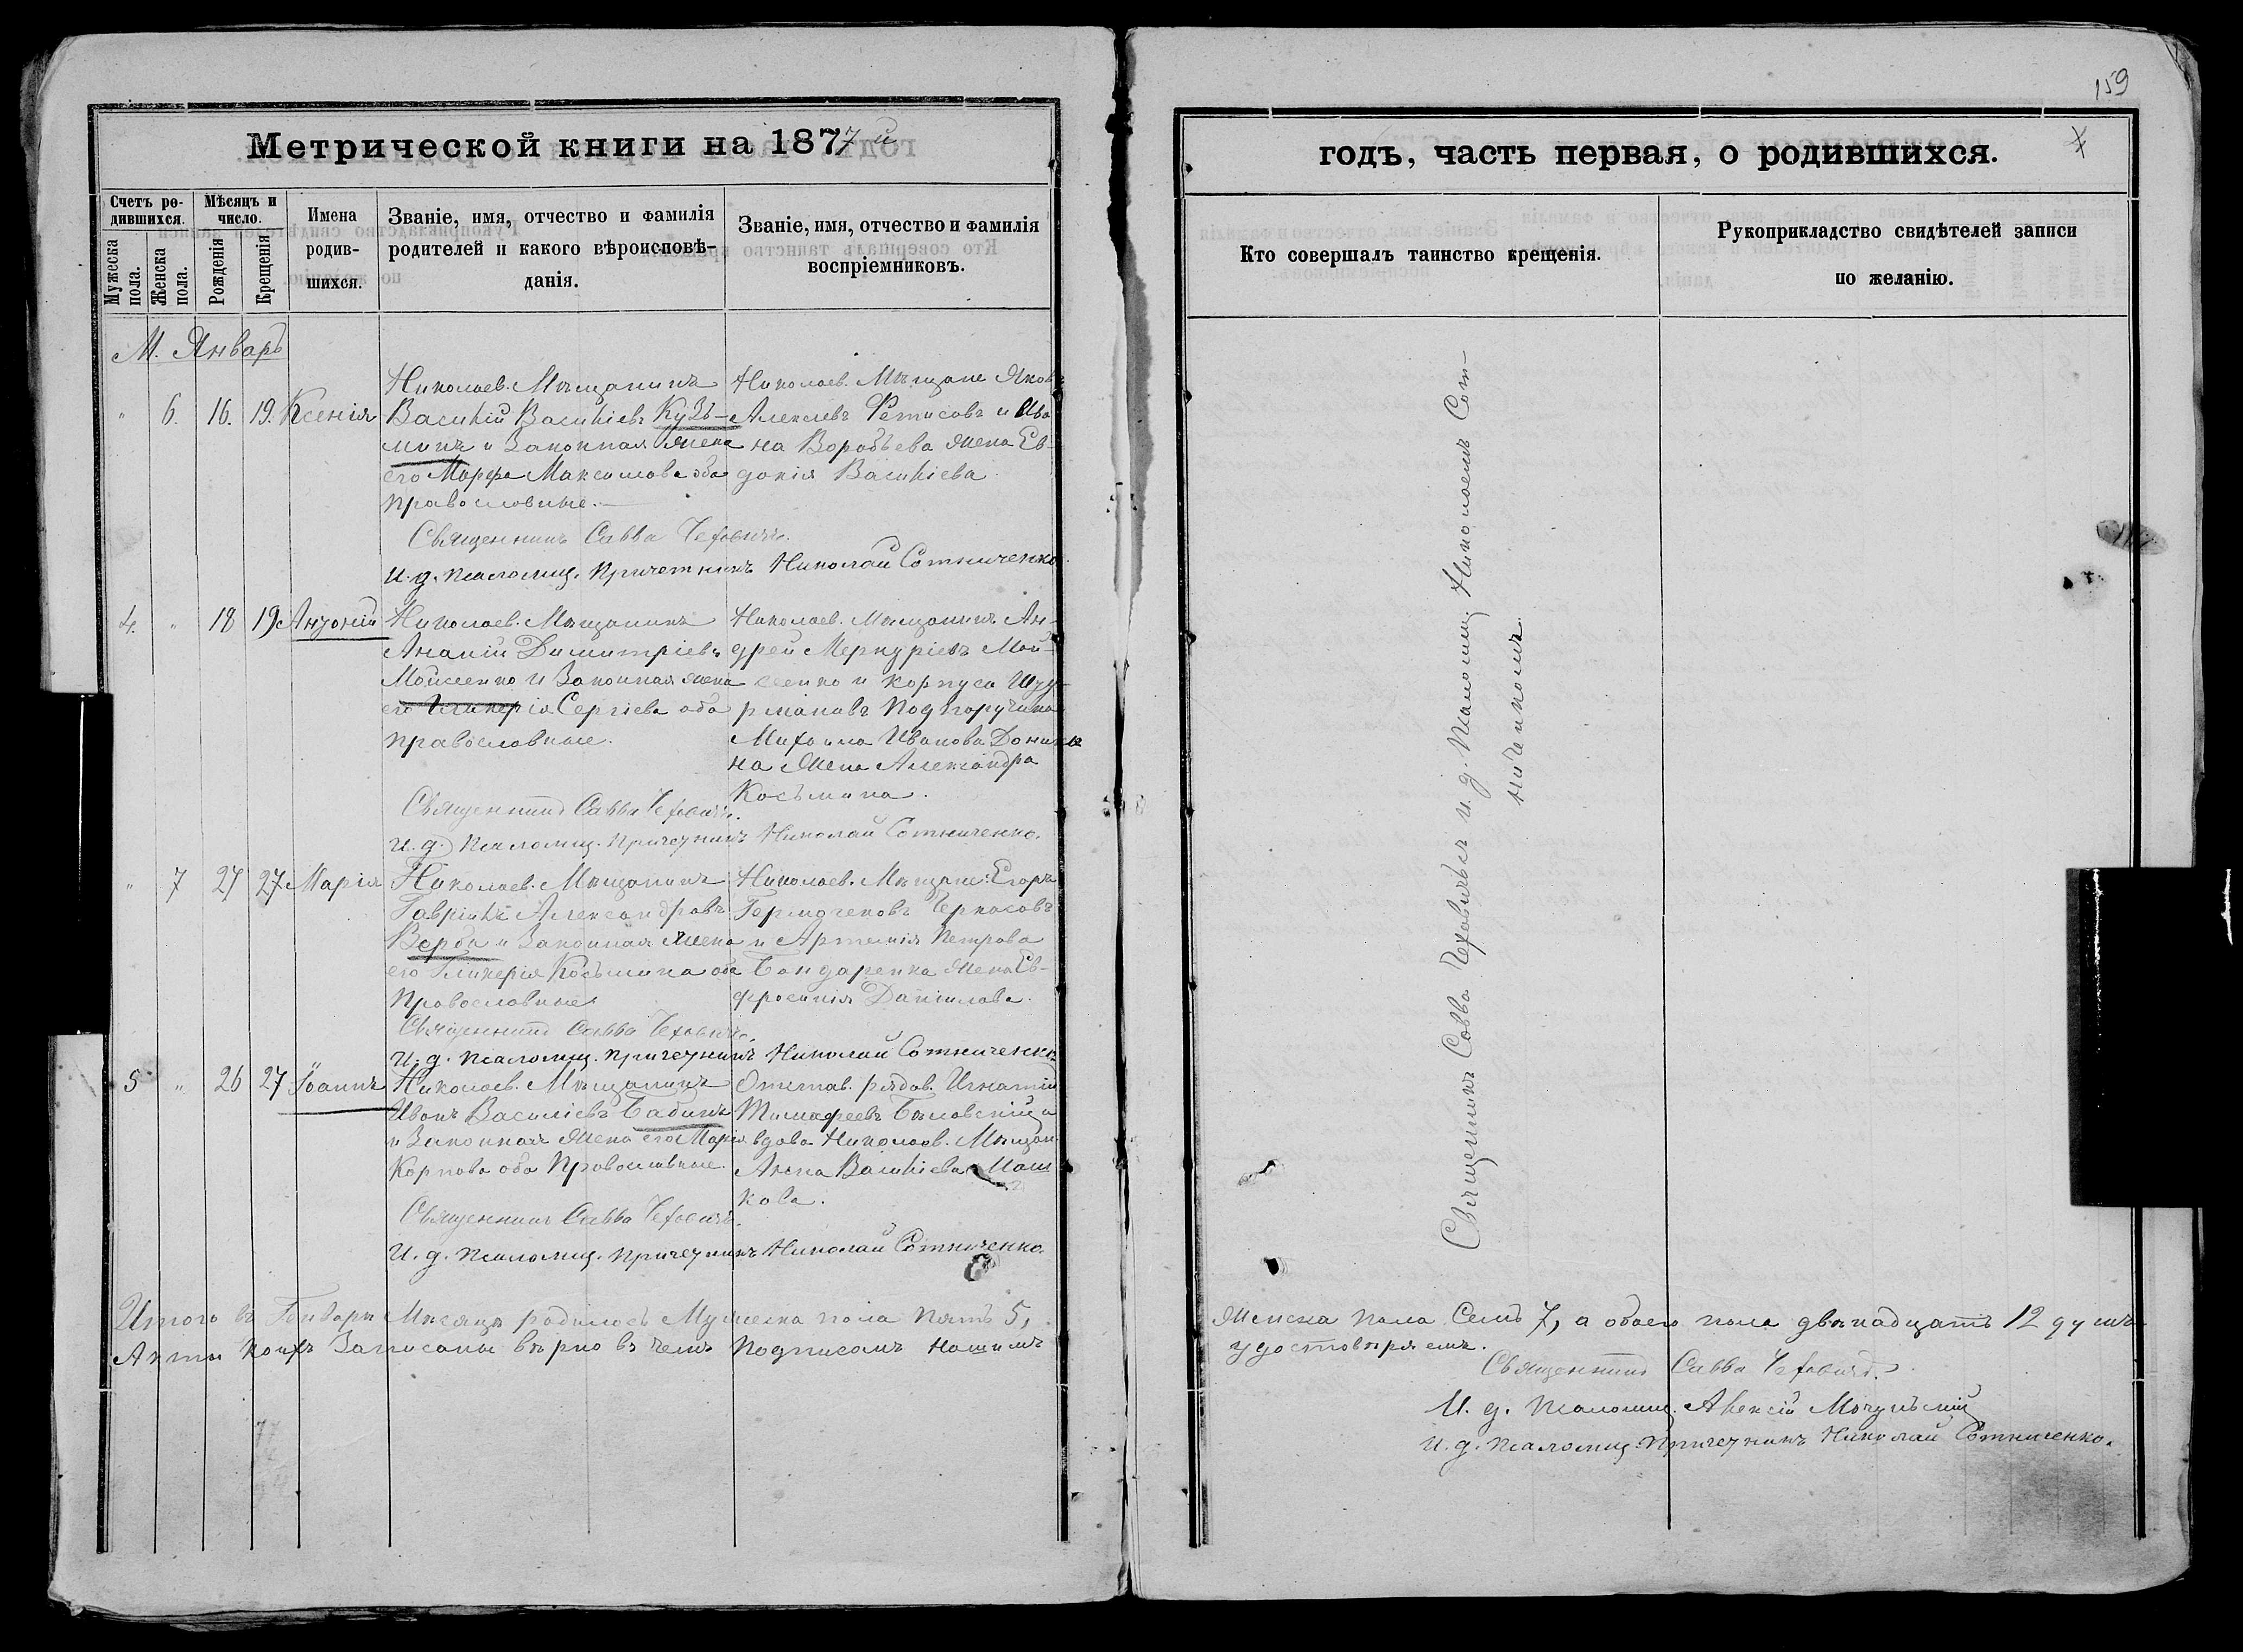 159
Метрической книги на 1877 й
годъ, часть первая, о родившихся.
Счетъ ро-
дившихся.
Мужеска
пола.
Женска
пола.
Мѣсяцъ и
число.
Рожденія
Крещенія
Имена
родив-
шихся.
Званіе, имя, отчество и фамилія
родителей и какого вѣроисповѣ-
данія.
Званіе, имя, отчество и фамилія
воспріемниковъ.
Кто совершалъ таинство крещенія.
Рукоприкладство свидѣтелей записи
по желанію.
М. Январь
" 6. 16. 19. Ксенія
Николаев. Мѣщанинъ
Василій Василіевъ Кузь-
минъ и Законная жена
его Марфа Максимова оба
православные.
Николаев. Мѣщане Яковъ
Алексѣевъ Фетисовъ и Ива
на Воробьева жена Ев-
докія Василіева
Священникъ Савва Чеховичъ.
И. д. псаломщ. Причетникъ Николай Сотниченко.
4. " 18 19 Антоній
Николаев. Мѣщанинъ
Ананій Димитріевъ
Мойсеенко и Законная жена
его Гликерія Сергіева оба
православные.
Николаев. Мѣщанинъ Ан-
дрей Меркуріевъ Мой-
сеенко и корпуса Шту-
рмановъ Подпоручика
Михаила Иванова
на жена Александра
Косьмина.
Священникъ Савва Чеховичъ.
И. д. псаломщ. Причетникъ Николай Сотниченко.
" 7 27 27 Марія
Николаев. Мѣщанинъ
Гавріилъ Александровъ
Верба и Законная жена
его Гликерія Косьмина оба
Православные
Николаев. Мѣщане: Егоръ
Черкасовъ
и Артемія Петрова
Бондаренка жена Ев-
фросинія Даніилова.
Священникъ Савва Чеховичъ.
И. д. псаломщ. Причетникъ Николай Сотниченко.
5 " 26 27 Іоаннъ
Николаев. Мѣщанинъ
Иванъ Василіевъ Бабинъ
и Законная жена его Марія
Карпова оба Православные.
Отстав. рядов. Игнатій
Тимофеевъ Бѣловскій и
вдова Николаев. Мѣщан.
Анна Василіева Маш
кова.
Священникъ Савва Чеховичъ.
И. д. псаломщ. Причетникъ Николай Сотниченко.
Итого въ Генварѣ Мѣсяцѣ родилось Мужеска пола пять 5,
Женска пола Семь 7, а обоего пола двѣнадцать 12 душъ
Акты коихъ Записаны вѣрно въ чемъ Подписомъ нашимъ
удостовѣряемъ.
Священникъ Савва Чеховичъ.
И. д. псаломщ. Алексій
И. д. псаломщ. Причетникъ Николай Сотниченко.
Священникъ Савва Чеховичъ и и. д. псаломщ. Николаемъ Сот-
ниченкомъ.